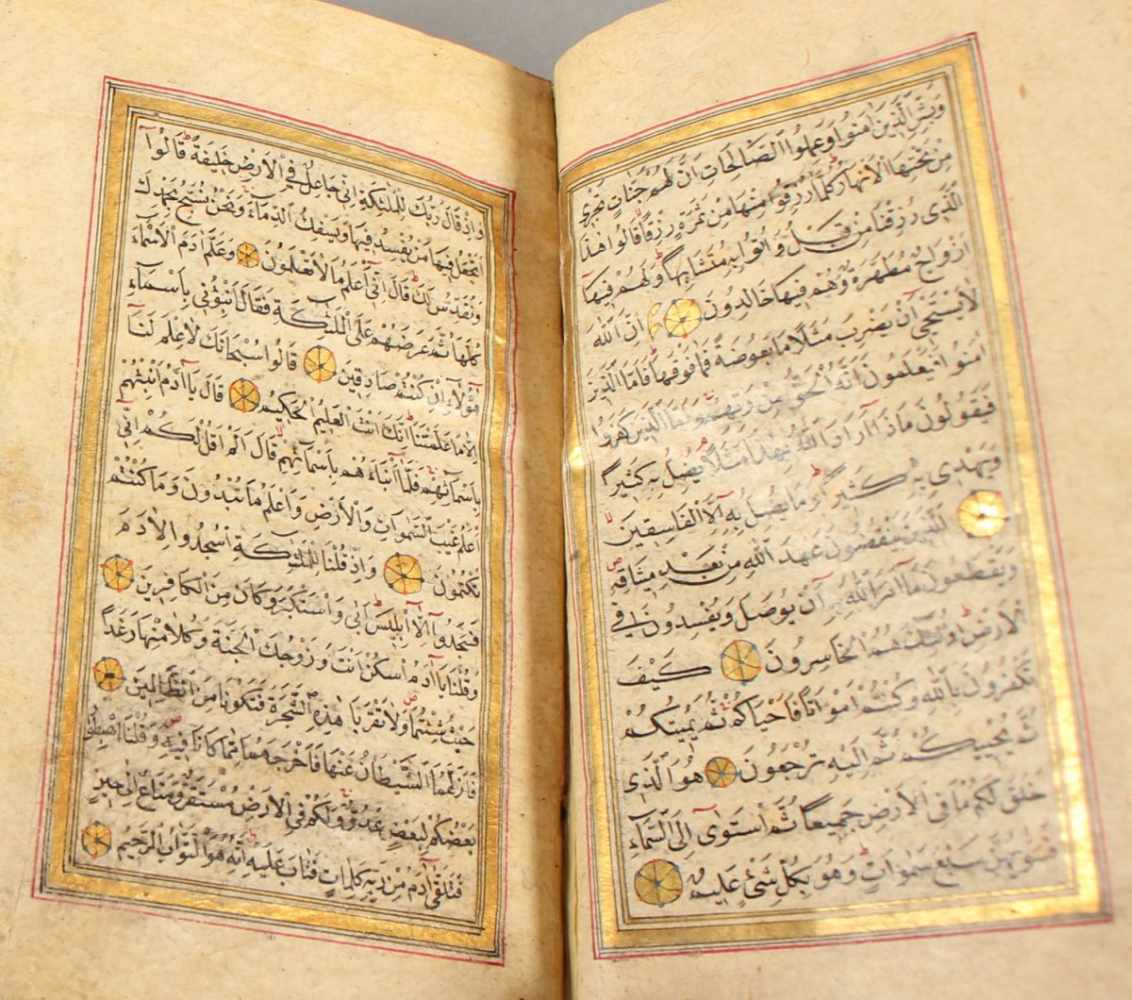 وَبَشِّرِ الَّذِينَ اٰمَنُوا وَعَمِلُوا الصَّالِحَاتِ اَنَّ لَهُمْ جَنَّاتٍ تَجْرِي
مِنْ تَحْتِهَا الْاَنْهَارُ كُلَّمَا رُزِقُوا مِنْهَا مِنْ ثَمَرَةٍ رِزْقًا قَالُوا هٰذَا
الَّذِى رُزِقْنَا مِنْ قَبْلُ وَاُتُوا بِهِ مُتَشَابِهًا وَلَهُمْ فِيهَا
اَزْوَاجٌ مُطَهَّرَةٌ وَهُمْ فِيهَا خَالِدُونَ اِنَّ اللهَ
لَا يَسْتَحْيِي اَنْ يَضْرِبَ مَثَلًا مَا بَعُوضَةً فَمَا فَوْقَهَا فَاَمَّا الَّذِينَ
اٰمَنُوا فَيَعْلَمُونَ اَنَّهُ الْحَقُّ مِنْ رَبِّهِمْ وَاَمَّا الَّذِينَ كَفَرُوا
فَيَقُولُونَ مَاذَا اَرَادَ اللهُ بِهٰذَا مَثَلًا يُضِلُّ بِهِ كَثِيرًا
وَيَهْدِى بِهِ كَثِيرًا وَمَا يُضِلُّ بِهِ اِلَّا الْفَاسِقِينَ
الَّذِينَ يَنْقُضُونَ عَهْدَ اللهِ مِنْ بَعْدِ مِيثَاقِهِ
وَيَقْطَعُونَ مَا اَمَرَ اللهُ بِهِ اَنْ يُوصَلَ وَيُفْسِدُونَ فِي
الْاَرْضِ اُولٰئِكَ هُمُ الْخَاسِرُونَ كَيْفَ
تَكْفُرُونَ بِاللهِ وَكُنْتُمْ اَمْوَاتًا فَاَحْيَاكُمْ ثُمَّ يُمِيتُكُمْ
ثُمَّ يُحْيِيكُمْ ثُمَّ اِلَيْهِ تُرْجَعُونَ هُوَ الَّذِى
خَلَقَ لَكُمْ مَا فِى الْاَرْضِ جَمِيعًا ثُمَّ اسْتَوٰى اِلَى السَّمَاءِ
فَسَوّٰيهُنَّ سَبْعَ سَمٰوَاتٍ وَهُوَ بِكُلِّ شَئٍ عَلِيمٌ
وَاِذْ قَالَ رَبُّكَ لِلْمَلٰئِكَةِ اِنِّى جَاعِلٌ فِي الْاَرْضِ خَلِيفَةً قَالُوا
اَتَجْعَلُ فِيهَا مَنْ يُفْسِدُ فِيهَا وَيَسْفِكُ الدِّمَاءَ وَنَحْنُ نُسَبِّحُ بِحَمْدِكَ
وَنُقَدِّسُ لَكَ قَالَ اِنِّى اَعْلَمُ مَا لَا تَعْلَمُونَ وَعَلَّمَ اٰدَمَ الْاَسْمَاءَ
كُلَّهَا ثُمَّ عَرَضَهُمْ عَلَى الْمَلٰئِكَةِ فَقَالَ اَنْبِؤُنِى بِاَسْمَاءِ
هٰؤُلَاءِ اِنْ كُنْتُمْ صَادِقِينَ قَالُوا سُبْحَانَكَ لَا عِلْمَ لَنَا
اِلَّا مَا عَلَّمْتَنَا اِنَّكَ اَنْتَ الْعَلِيمُ الْحَكِيمُ قَالَ يَا اٰدَمُ اَنْبِئْهُمْ
بِاَسْمَائِهِمْ فَلَمَّا اَنْبَاَهُمْ بِاَسْمَائِهِمْ قَالَ اَلَمْ اَقُلْ لَكُمْ اِنِّى
اَعْلَمُ غَيْبَ السَّمٰوَاتِ وَالْاَرْضِ وَاَعْلَمُ مَا تُبْدُونَ وَمَا كُنْتُمْ
تَكْتُمُونَ وَاِذْ قُلْنَا لِلْمَلٰئِكَةِ اسْجُدُوا لِاٰدَمَ
فَسَجَدُوا اِلَّا اِبْلِيسَ اَبٰى وَاسْتَكْبَرَ وَكَانَ مِنَ الْكَافِرِينَ
وَقُلْنَا يَا اٰدَمُ اسْكُنْ اَنْتَ وَزَوْجُكَ الْجَنَّةَ وَكُلَا مِنْهَا رَغَدًا
حَيْثُ شِئْتُمَا وَلَا تَقْرَبَا هٰذِهِ الشَّجَرَةَ فَتَكُونَا مِنَ الظَّالِمِينَ
فَاَزَلَّهُمَا الشَّيْطَانُ عَنْهَا فَاَخْرَجَهُمَا مِمَّا كَانَا فِيهِ وَقُلْنَا اهْبِطُوا
بَعْضُكُمْ لِبَعْضٍ عَدُوٌّ وَلَكُمْ فِى الْاَرْضِ مُسْتَقَرٌّ وَمَتَاعٌ اِلٰى حِينٍ
فَتَلَقّٰى اٰدَمُ مِنْ رَبِّهِ كَلِمَاتٍ فَتَابَ عَلَيْهِ اِنَّهُ هُوَ التَّوَّابُ الرَّحِيمُ